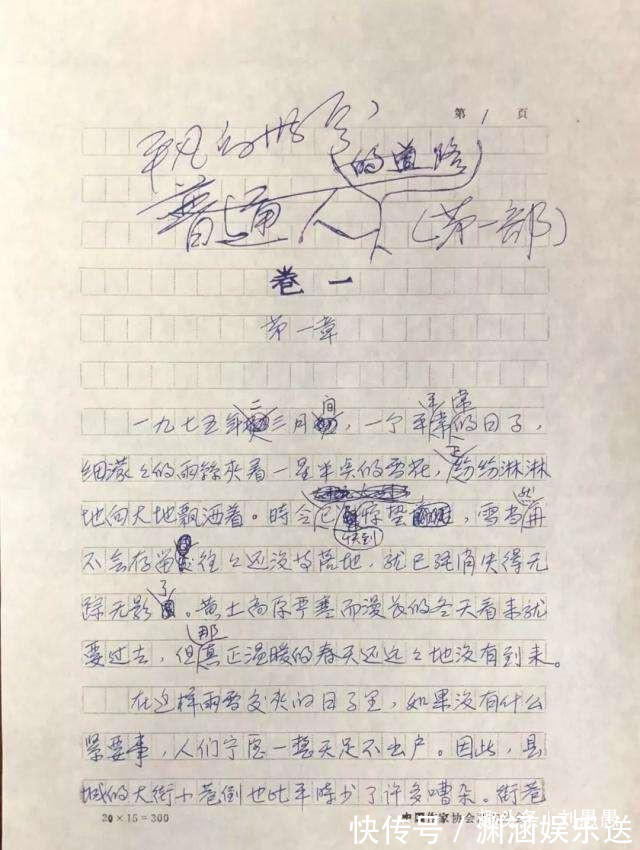 第 1 页
平凡的世界
(的道路)
普通人(第一部)
卷一
第一章
二 间 平常
一九七五年三月,一个平常的日子,
细濛々的雨丝夹着一星半点的雪花,正纷纷淋淋
地向大地飘洒着。时令已快到惊蛰,雪当然再
不会存留,往々还没等落地,就已经消失得无
踪无影了。黄土高原严寒而漫长的冬天看来就
要过去,但那真正温暖的春天还远々地没有到来。
在这样雨雪交夹的日子里,如果没有什么
紧要事,人们宁愿一整天足不出户。因此,县
城的大街小巷倒也比平时少了许多嘈杂。街巷
20×15=300
中国作家协会
刘墨愚
快传号/渊涵娱乐送